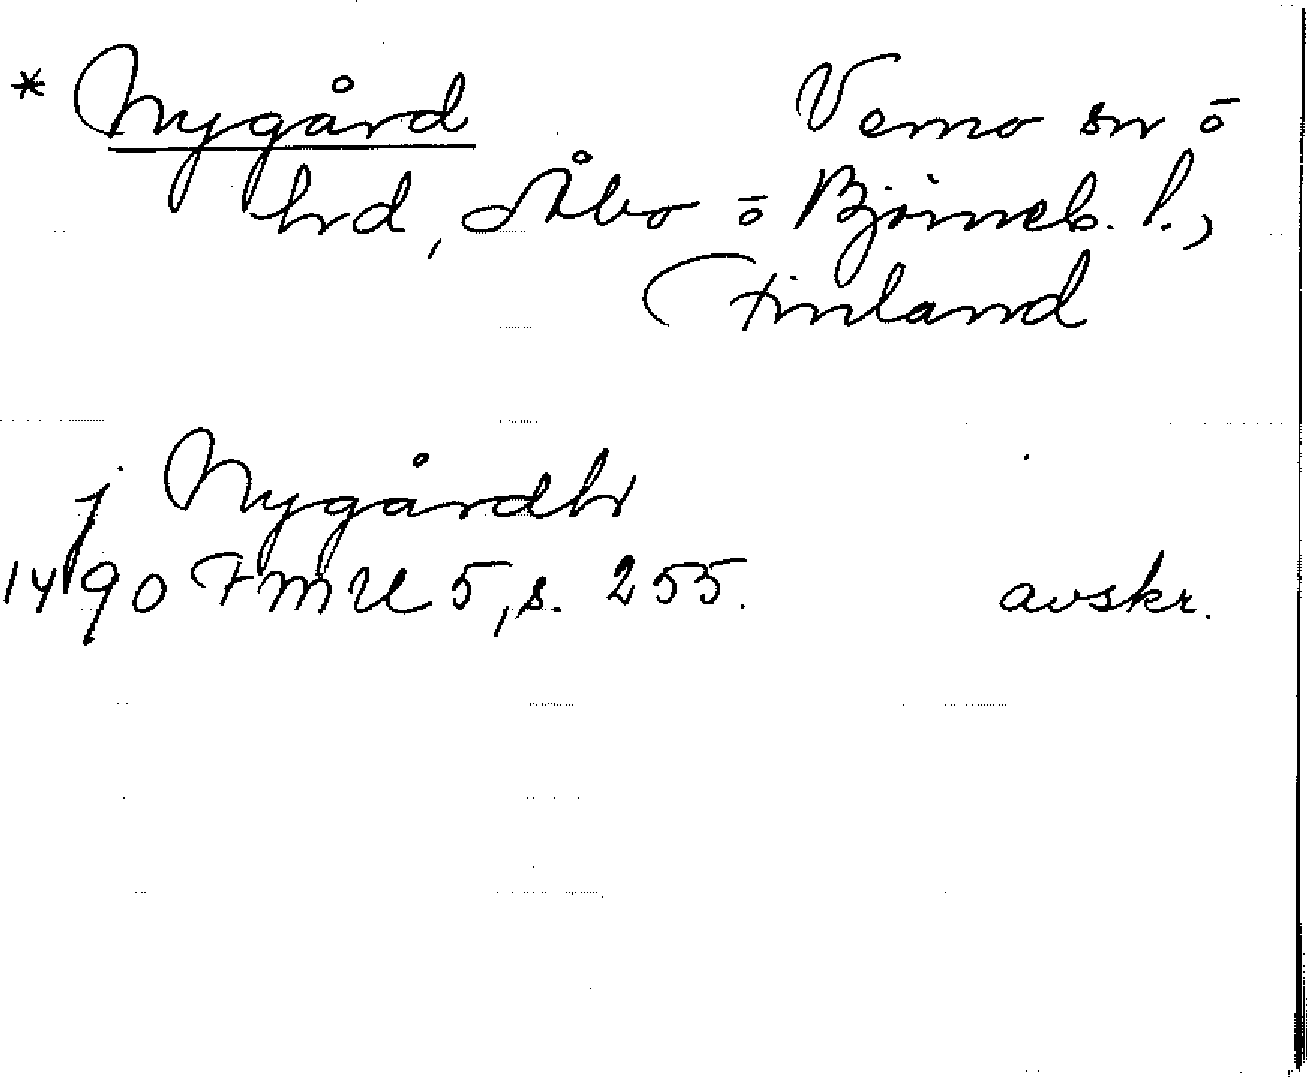 * Nygård Vemo sn o
hrd, Åbo o Björneb. l.,
Finland
j Nygårdh
1490 FMU 5, s. 255. avskr.